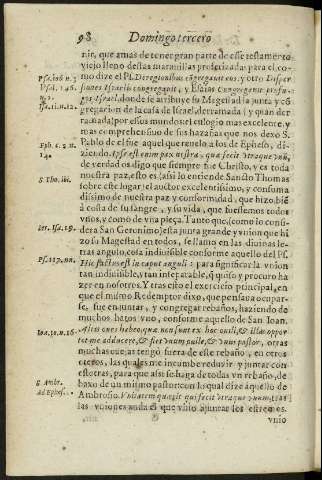 98 Domingo tercero
nir, que amas de tener gran parte de este testamento
viejo lleno destas marauillas profetizadas para el, co-
mo dize el Ps. De regionibus congregauit eos, y otro Disper
siones Israelis congregauit, y Esaias Congregauit profu-
gos Israel, donde se atribuye su Magestad la junta y co-
gregacion de la casa de Israel derramada (y quan der-
ramada) por essos mundos: el elogio mas excelente, y
mas comprehensiuo de sus hazañas que nos dexò S.
Pablo de el fue aquel que reuelò a los de Epheso, di-
ziendo. Ipse est enim pax nostra, qui fecit vtraque vnũ,
de verdad os digo que siempre fue Christo, y es toda
nuestra paz, esto es (assi lo entiende Sando Thomas
sobre este lugar) el auctor excelentissimo, y consuma
dissimo de nuestra paz y conformidad, que hizo, biẽ
a costa de su sangre, y su vida, que fuessemos todos
vnos, y como de vna pieça. Tanto que, (como lo consi-
dera San Geronimo) esta junta grande y vnion que hi
zo su Magestad en todos, se llamò en las diuinas le-
tras angulo, cosa indiuisible conforme aquello del Ps.
Hic factus est in caput anguli: para significar la vnion
tan indiuisible, y tan inseparable, q̃ quiso y procurò ha
zer en nosotros. Y tras esto el exercicio principal, en
que el mismo Redemptor dixo, que pensaua ocupar-
se, fue en juntar, y congregar rebaños, haziendo de
muchos hatos vno, conforme aquello de San Ioan.
Alias oues habeo, quæ non sunt ex hoc ouili, & illas oppor
tet me adducere, & fiet vnum ouile, & vnus pastor, otras
muchas ouejas tengo fuera de este rebaño, en otros
exteros, las quales me incumbe reduzir y juntar con
estotras, para que assi se haga de todas vn rebaño, de
baxo de vn mismo pastor: con lo qual dize aquello de
Ambrosio. Vnitatem quæsiuit qui fecit vtraque vnum, tras
las vniones anda el que vino ajuntar los estremos.
vnio
Psa. 106. n. 3
Psal. 146.
n. 2.
Isa. 11. n. 12.
Eph. c. 2. n.
14.
S. Tho. ibi.
Ier. Isa. 19.
Ps. 117. nu.
Ioa. 10. n. 16.
S. Ambr.
ad Ephes.